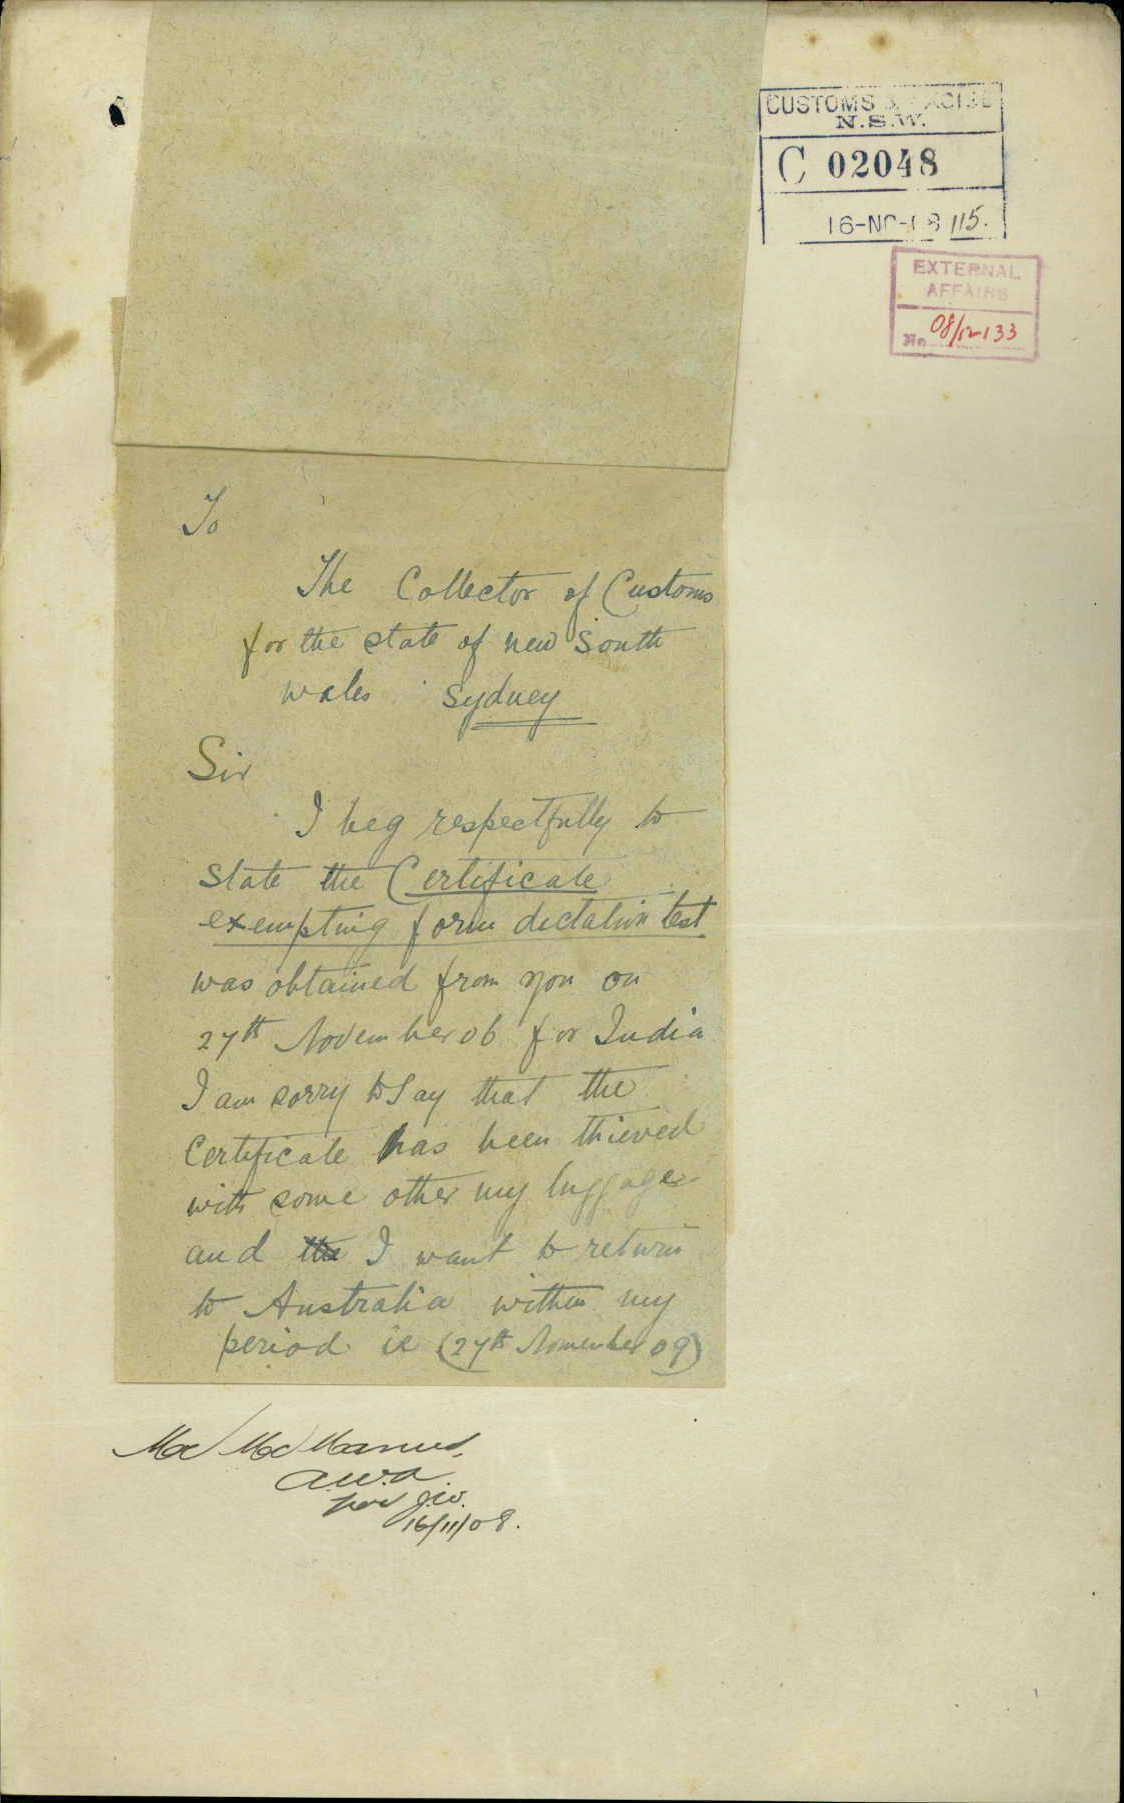 CUSTOMS & EXCISE
N.S.W.
C 02048
16-NO-08 115.
EXTERNAL
AFFAIRS
No 08/12133
To
The Collector of Customs
for the state of new South
wales Sydney
Sir
I beg respectfully to
state the Certificate
exempting form dictation test
was obtained from you on
27th November 06 for India
I am sorry to Say that the
Certificate has been thieved
with some other my luggage
and the I want to return
to Australia within my
period ie (27th Nomember 09)
Mr McManus,
16/11/08.